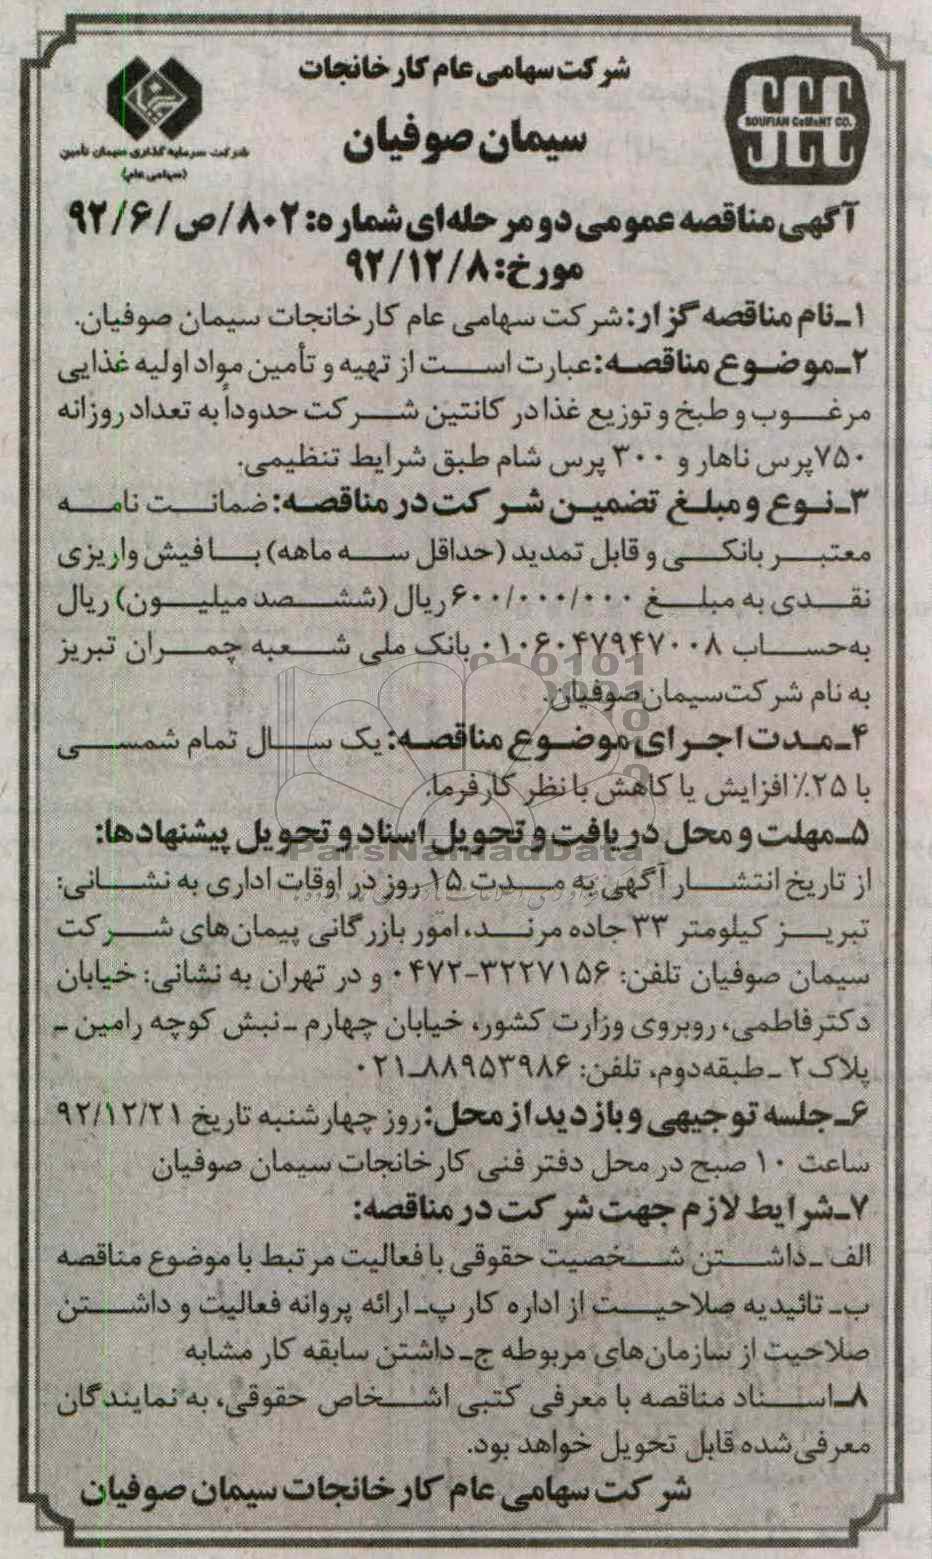 شرکت سهامی عام کارخانجات
سیمان صوفیان
SOUFIAN CeMeNT CO.
شرکت سرمایه گذاری سیمان تأمین
(سهامی عام)
آگهی مناقصه عمومی دو مرحله‌ای شماره: ۸۰۲/ص/۹۲/۶
مورخ: ۹۲/۱۲/۸
۱ـ نام مناقصه گزار: شرکت سهامی عام کارخانجات سیمان صوفیان.
۲ـ موضوع مناقصه: عبارت است از تهیه و تأمین مواد اولیه غذایی
مرغوب و طبخ و توزیع غذا در کانتین شرکت حدوداً به تعداد روزانه
۷۵۰ پرس ناهار و ۳۰۰ پرس شام طبق شرایط تنظیمی.
۳ـ نوع و مبلغ تضمین شرکت در مناقصه: ضمانت نامه
معتبر بانکی و قابل تمدید (حداقل سه ماهه) یا فیش واریزی
نقدی به مبلغ ۶۰۰/۰۰۰/۰۰۰ ریال (ششصد میلیون) ریال
به حساب ۰۱۰۶۰۴۷۹۴۷۰۰۸ بانک ملی شعبه چمران تبریز
به نام شرکت سیمان صوفیان.
۴ـ مدت اجرای موضوع مناقصه: یک سال تمام شمسی
با ۲۵٪ افزایش یا کاهش با نظر کارفرما.
۵ـ مهلت و محل دریافت و تحویل اسناد و تحویل پیشنهادها:
ParsNamadData
از تاریخ انتشار آگهی به مدت ۱۵ روز در اوقات اداری به نشانی:
تبریز کیلومتر ۳۳ جاده مرند، امور بازرگانی پیمان‌های شرکت
سیمان صوفیان تلفن: ۳۲۲۷۱۵۶-۰۴۷۲ و در تهران به نشانی: خیابان
دکتر فاطمی، روبروی وزارت کشور، خیابان چهارم ـ نبش کوچه رامین ـ
پلاک ۲ ـ طبقه دوم، تلفن: ۸۸۹۵۳۹۸۶ـ۰۲۱
۶ـ جلسه توجیهی و بازدید از محل: روز چهارشنبه تاریخ ۹۲/۱۲/۲۱
ساعت ۱۰ صبح در محل دفتر فنی کارخانجات سیمان صوفیان
۷ـ شرایط لازم جهت شرکت در مناقصه:
الف ـ داشتن شخصیت حقوقی با فعالیت مرتبط با موضوع مناقصه
ب ـ تائیدیه صلاحیت از اداره کار پ ـ ارائه پروانه فعالیت و داشتن
صلاحیت از سازمان‌های مربوطه ج ـ داشتن سابقه کار مشابه
۸ـ اسناد مناقصه با معرفی کتبی اشخاص حقوقی، به نمایندگان
معرفی شده قابل تحویل خواهد بود.
شرکت سهامی عام کارخانجات سیمان صوفیان